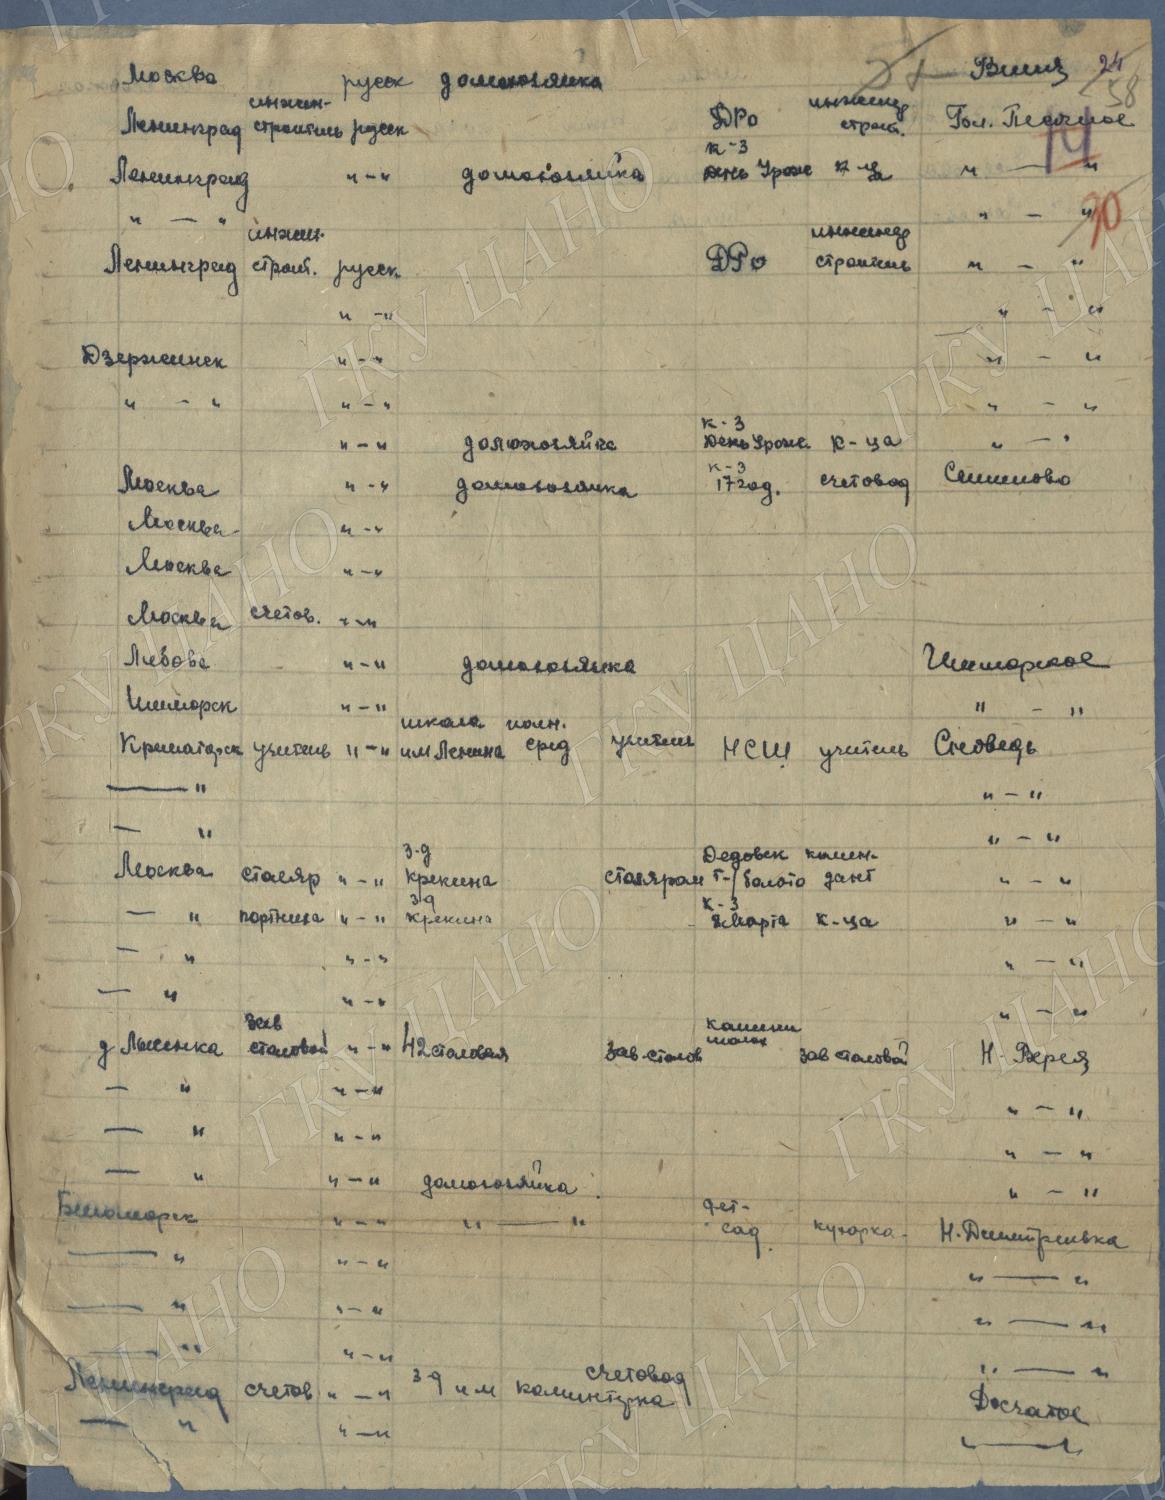 Москва русск домохозяйка Вилия 24
58
инжен- инженер
Ленинград строитель русск ДРО строит. Гол. Песочное
14
к-з
Ленинград " - " домохозяйка День Урож к-ца " — "
" — " " - "
70
инжен. инженер
Ленинград строит. русск ДРО строитель " - "
" - " " - "
Дзержинск " - " " - "
" - " " - " " - "
к-з
" - " домохозяйка День Урож. к-ца " — "
к-з
Москва " - " домохозяйка 17 год. счетовод Сешшово
Москва " - "
Москва " - "
Москва счетов. " - "
" - " домохозяйка Шиморское
Шиморск " - " " - "
школа полн.
Краматорск учитель " - " им Ленина сред учитель НСШ учитель Сноведь
— " " - "
— " " - "
з-д Дедовск комен-
Москва столяр " - " Крекина столяром т-/болото дант " - "
з-д к-з
— " портниха " - " Крекина 8 марта к-ца " - "
— " " - " " - "
— " " - " " - "
зав
д столовой " - " 42 столовая зав столов зав столовой Н-Верея
— " " - " " - "
— " " - " " - "
— " " - " домохозяйка. " - "
дет-
Беломорск " - " " — " сад кухарка. Н.Димитриевка
— " " - " " — "
— " " - " " — "
— " " - " " — "
счетовод
Ленинград счетов " - " з-д им коминтерна Досчатое
— " " - " " — "
ГКУ ЦАНО